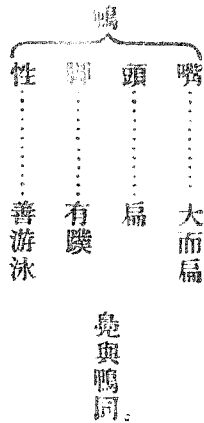 鴨
嘴………大而扁
頭………扁
脚………有蹼
性………善游泳
鳧與鴨同。